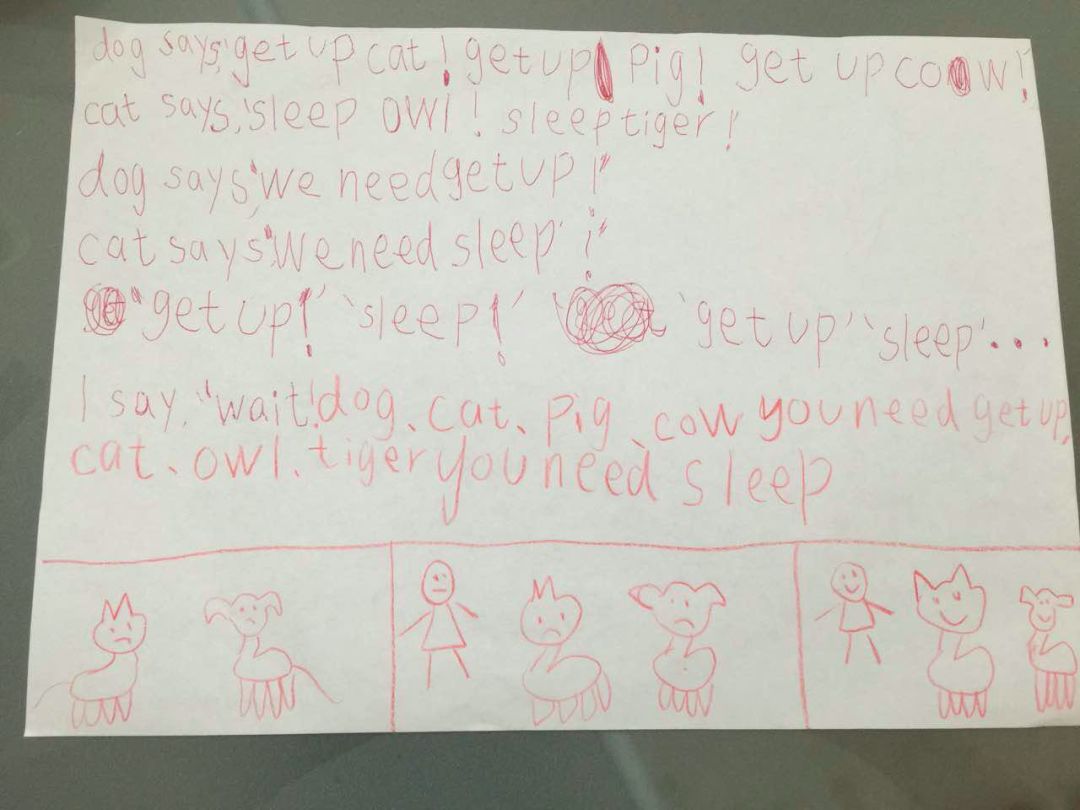 dog says,'get up cat! get up Pig! get up cow!
cat says,'sleep owl! sleep tiger!
dog says,"we need get up!"
cat says"We need sleep' !"
"get up!' 'sleep!' 'get up' 'sleep'...
I say,"wait!dog、cat、Pig、cow you need get up,
cat、owl、tiger you need sleep